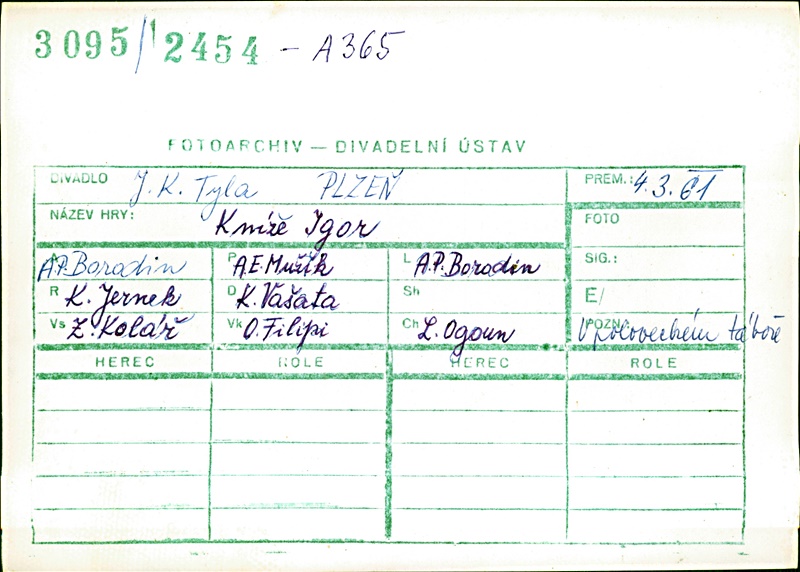 3095/2454 - A365
FOTOARCHIV — DIVADELNÍ ÚSTAV
DIVADLO J. K. Tyla PLZEŇ PREM.: 4.3.61
NÁZEV HRY: Kníže Igor FOTO
A.P. Borodin P A.E. Mužík L A.P. Borodin SIG.:
R K. Jernek D K. Vašata Sh E/
Vs Z. Kolář Vk O. Filipi Ch L. Ogoun POZN. V poloveckém táboře
HEREC ROLE HEREC ROLE